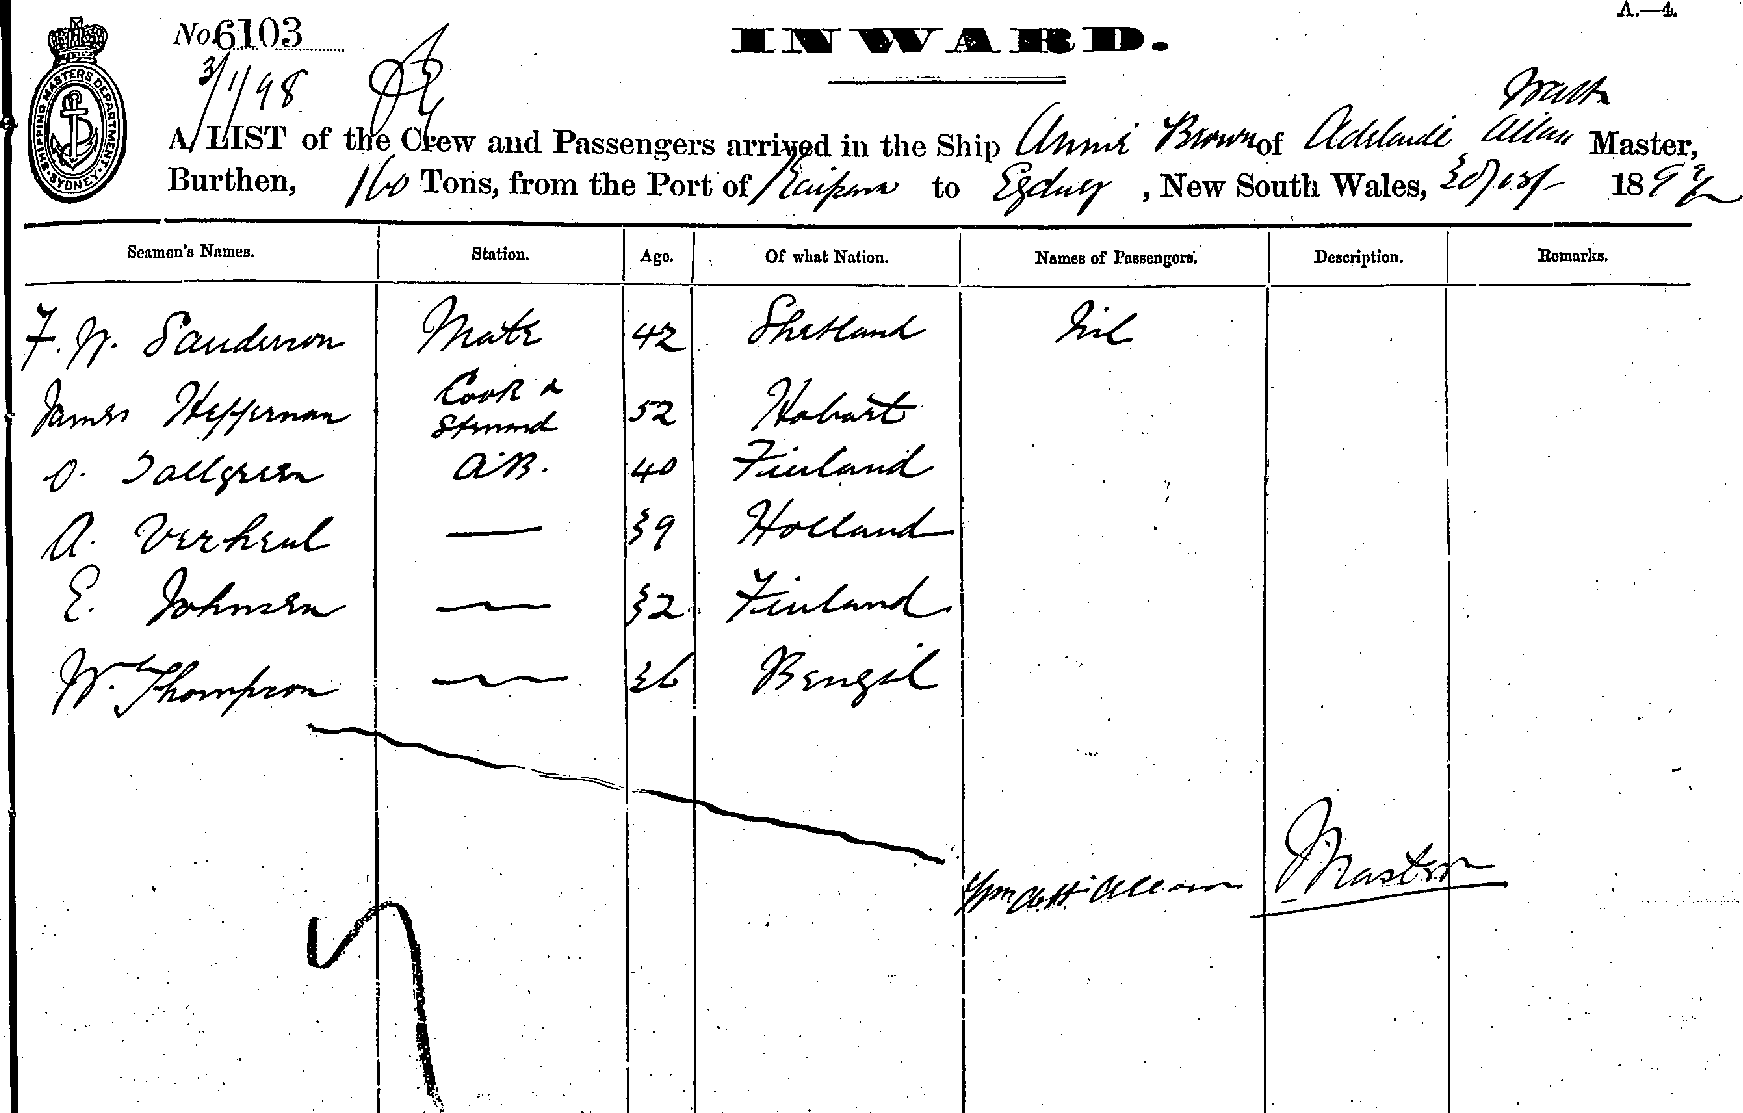 A.—4.
No. 6103
INWARD.
SHIPPING MASTERS DEPARTMENT SYDNEY
3/1/98
A LIST of the Crew and Passengers arrived in the Ship Annie Brown of Adelaide Allan Master,
Burthen, 160 Tons, from the Port of Kaipara to Sydney, New South Wales, 189
Seamen's Names. Station. Age. Of what Nation. Names of Passengers. Description. Remarks.
F. W. Sanderson Mate 42 Shetland Nil
James Heffernan Cook & Steward 52 Hobart
O. Tallgreen A.B. 40 Finland
A. Verheul — 39 Holland
E. Johnsen — 32 Finland
W. Thompson — 36 Bengal
Allan Master